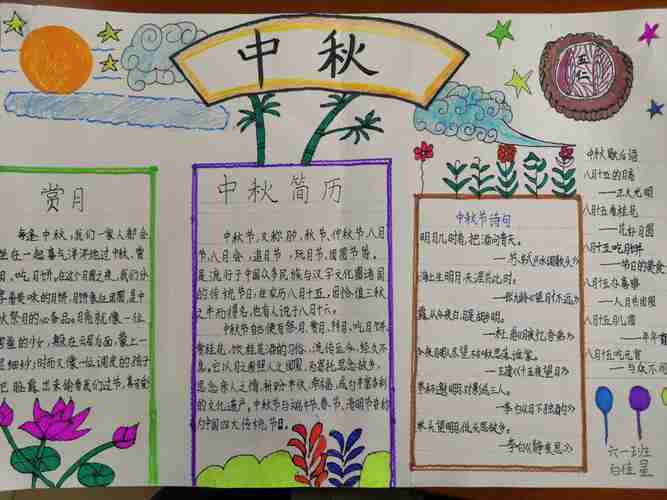 中秋
五仁
赏月
每逢中秋,我们一家人都会
坐在一起喜气洋洋地过中秋,赏
月、吃月饼。在这个月圆之夜,我们分
享着美味的月饼,月饼象征团圆,是中
秋祭月的必备品。月亮就像一位
害羞的少女,躲在云层后面,蒙上一
层细纱;时而又像一位调皮的孩子
把脸露出来偷看我们过节,真可爱
中秋简历
中秋节,又称
秋节、仲秋节、八月
节、八月会、追月节、玩月节、团圆节等。
是流行于中国众多民族与汉字文化圈诸国
的传统节日,在农历八月十五,因恰值三秋
之半而得名,也有人说于八月十六。
中秋节自古便有祭月、赏月、拜月、吃月饼、
赏桂花、饮桂花酒的习俗,流传至今,经久不
息。它以月之圆照人之团圆,为寄托思念故乡,
思念亲人之情,祈盼丰收、幸福,成为丰富多彩
的文化遗产。中秋节与端午节、春节、清明节合称
为中国四大传统节日。
中秋节诗句
明月几时有,把酒问青天。
—苏轼《水调歌头》
海上生明月,天涯共此时。
—张九龄《望月怀远》
露从今夜白,月是故乡明。
—杜甫《月夜忆舍弟》
今夜月明人尽望,不知秋思落谁家。
—王建《十五夜望月》
举杯邀明月,对影成三人。
—李白《月下独酌》
举头望明月,低头思故乡。
—李白《静夜思》
中秋歇后语
八月十五的月亮
—正大光明
八月十五看桂花
—花好月圆
八月十五吃月饼
—节日的美食
八月十五办喜事
—人月共团圆
八月十五月儿圆
—年年
八月十五吃元宵
—与众不同
六一班